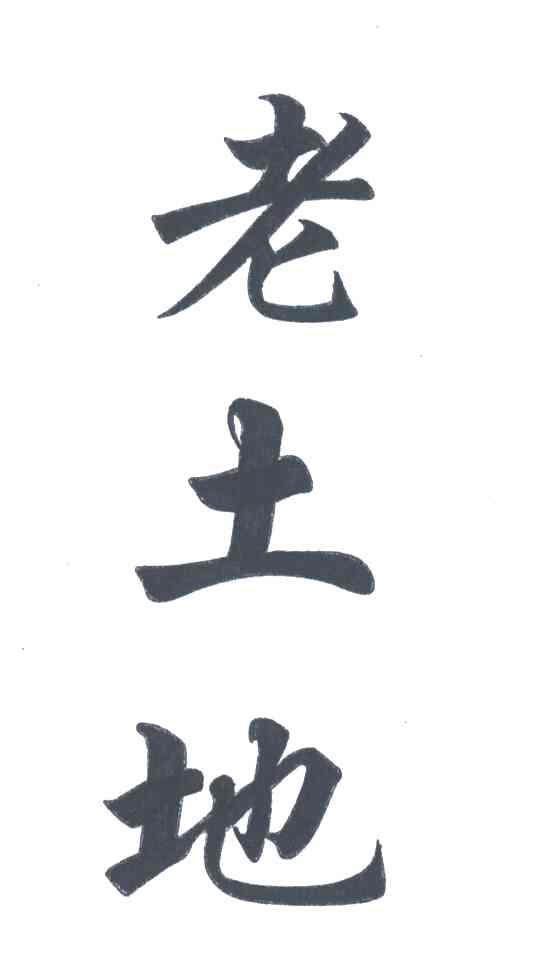 老土地